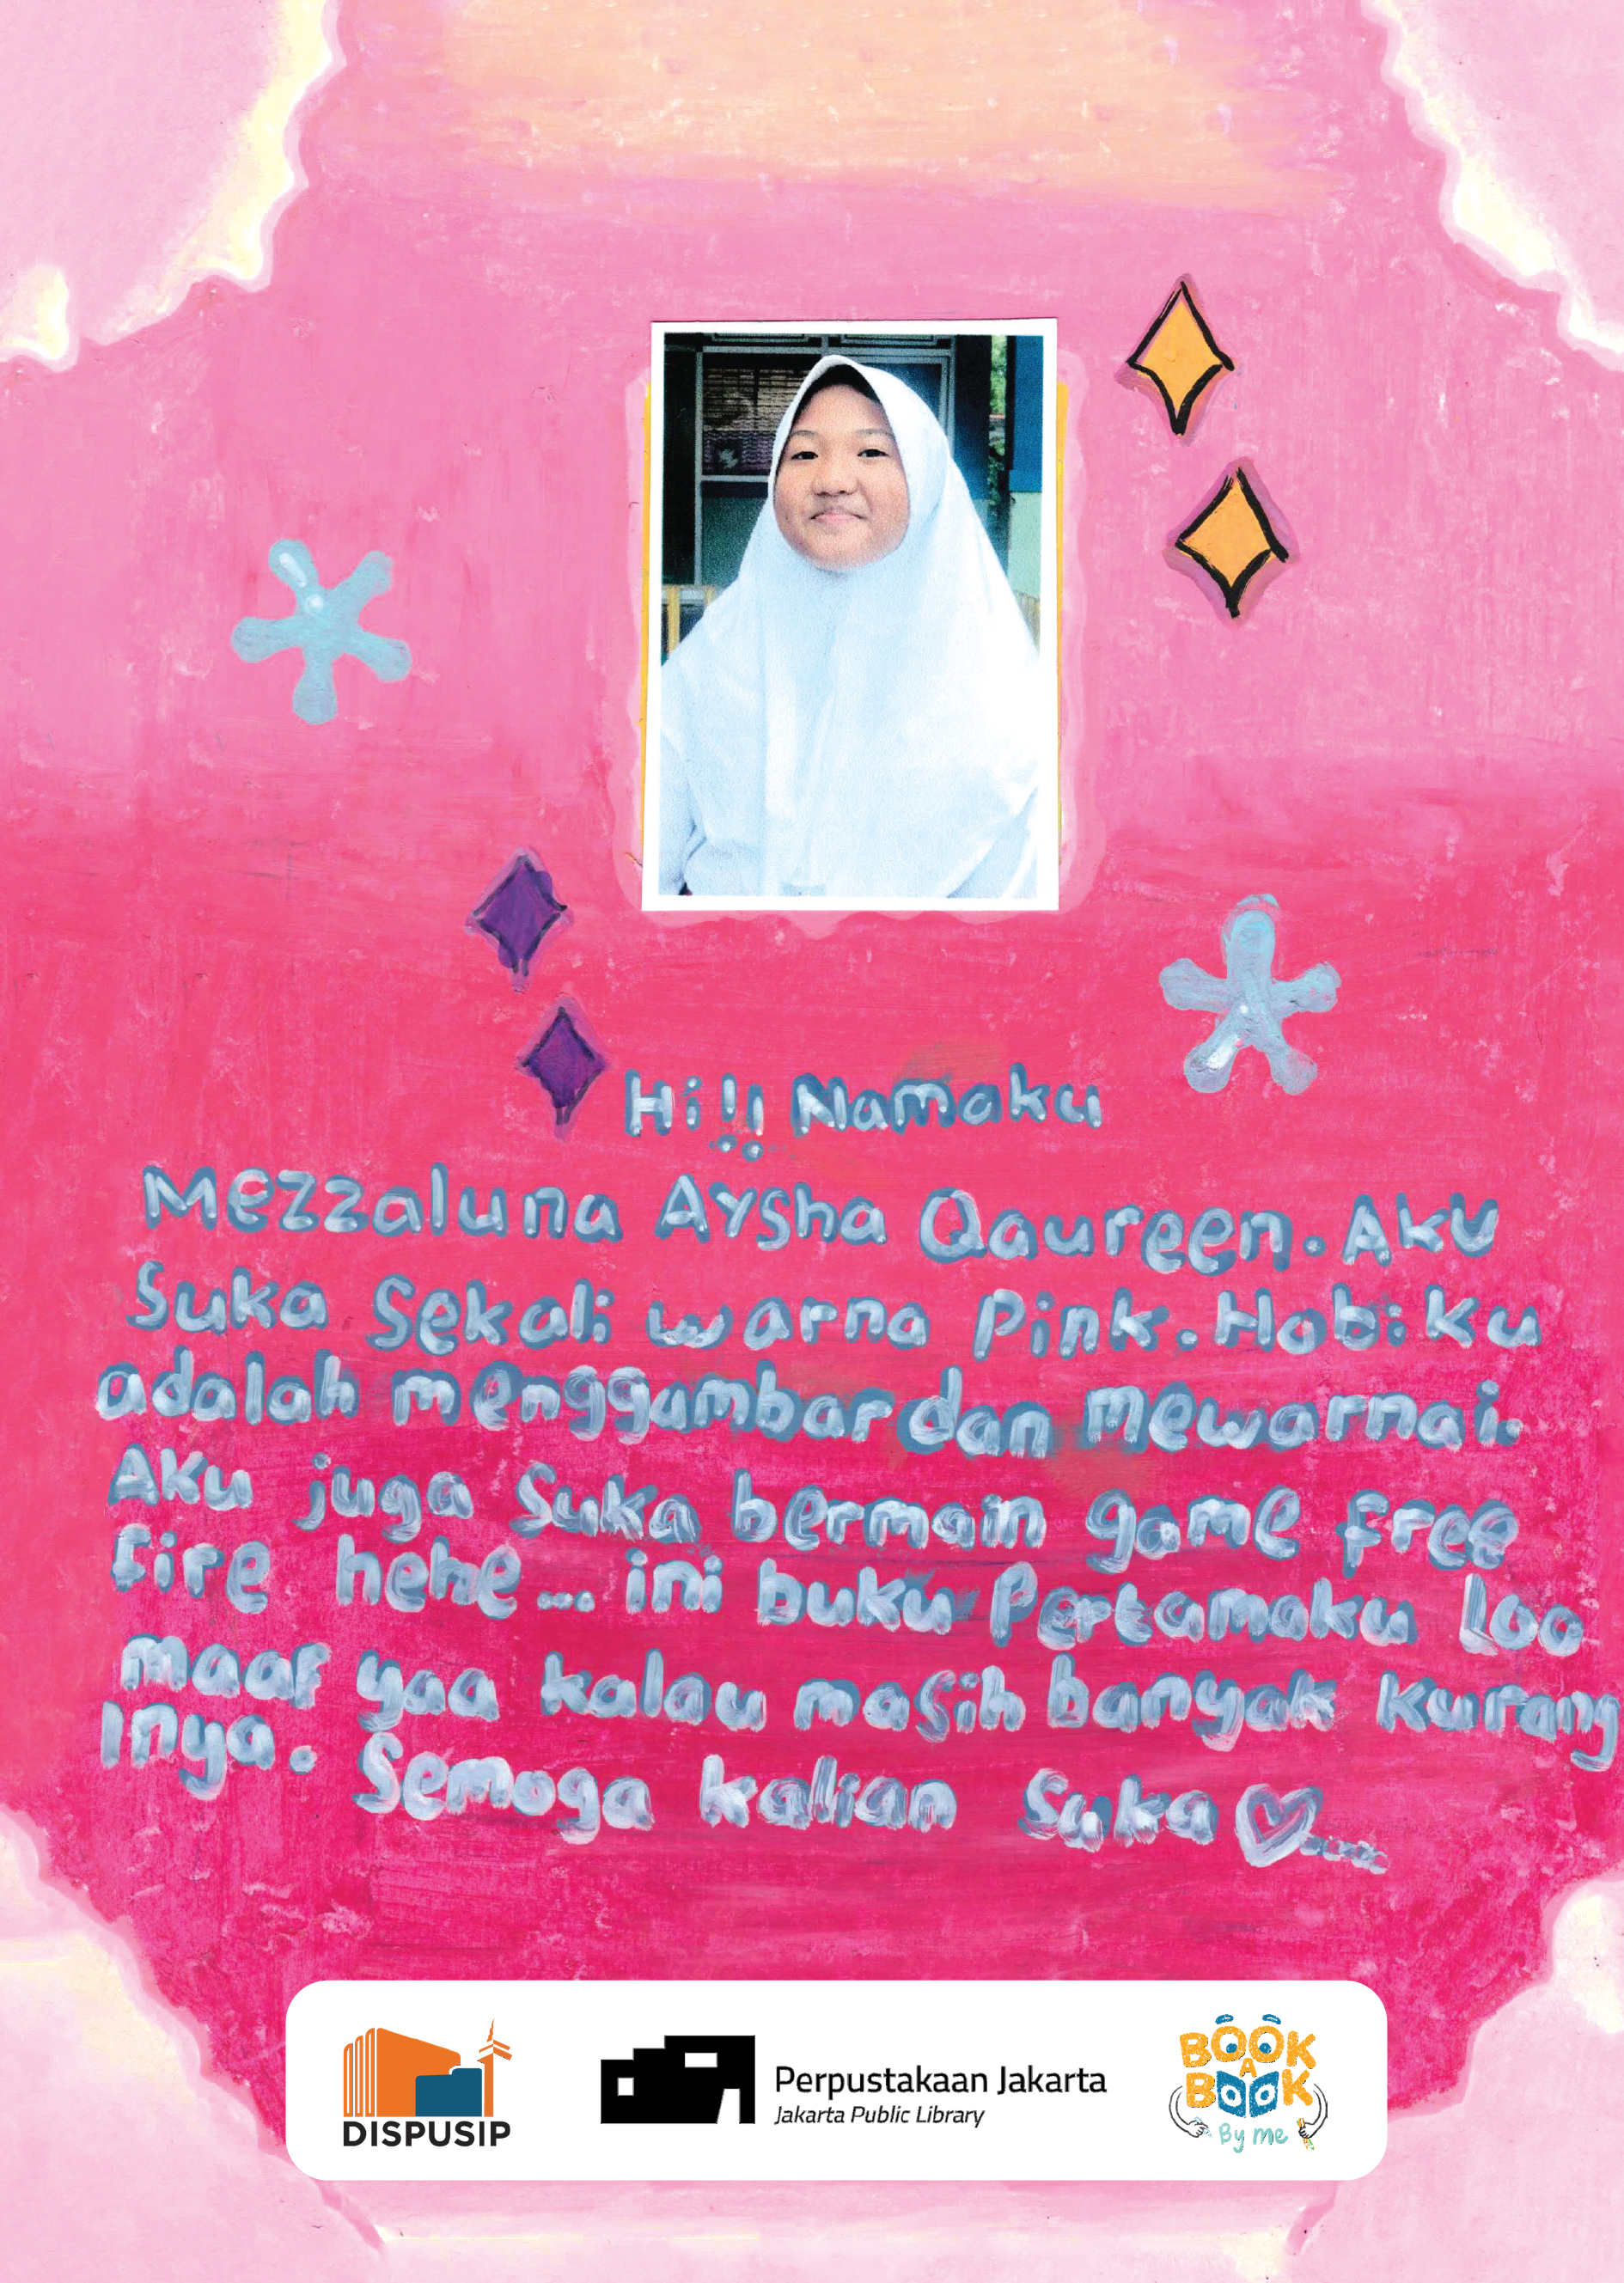 Hi!! Namaku
Mezzaluna Aysha Qaureen. Aku
Suka Sekali warna Pink. Hobi Ku
adalah menggambar dan mewarnai.
AKu juga Suka bermain game free
fire hehe... ini buku Pertamaku Loo
maaf yaa kalau masih banyak kurang
nya. Semoga kalian Suka ♡....
DISPUSIP
Perpustakaan Jakarta
Jakarta Public Library
BOOK
A
BOOK
By me